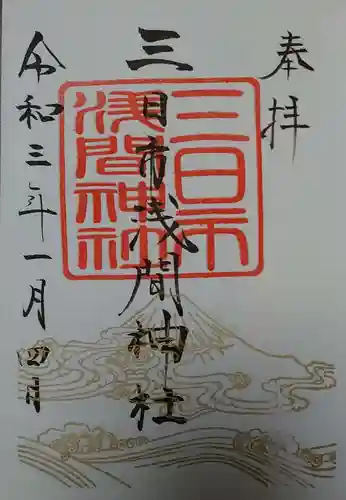 奉拝
三日市浅間神社
三日市
浅間神社
令和三年一月四月